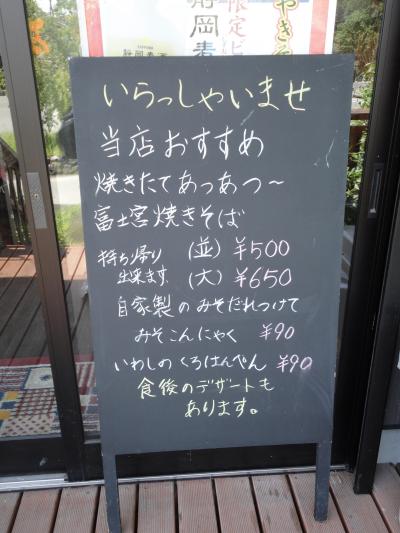 静岡麦酒
限定ビ
やきそ
いらっしゃいませ
当店おすすめ
焼きたてあつあつ〜
富士宮焼きそば
持ち帰り出来ます。
(並) ¥500
(大) ¥650
自家製のみそだれつけて
みそこんにゃく ¥90
いわしのくろはんぺん ¥90
食後のデザートも
あります。